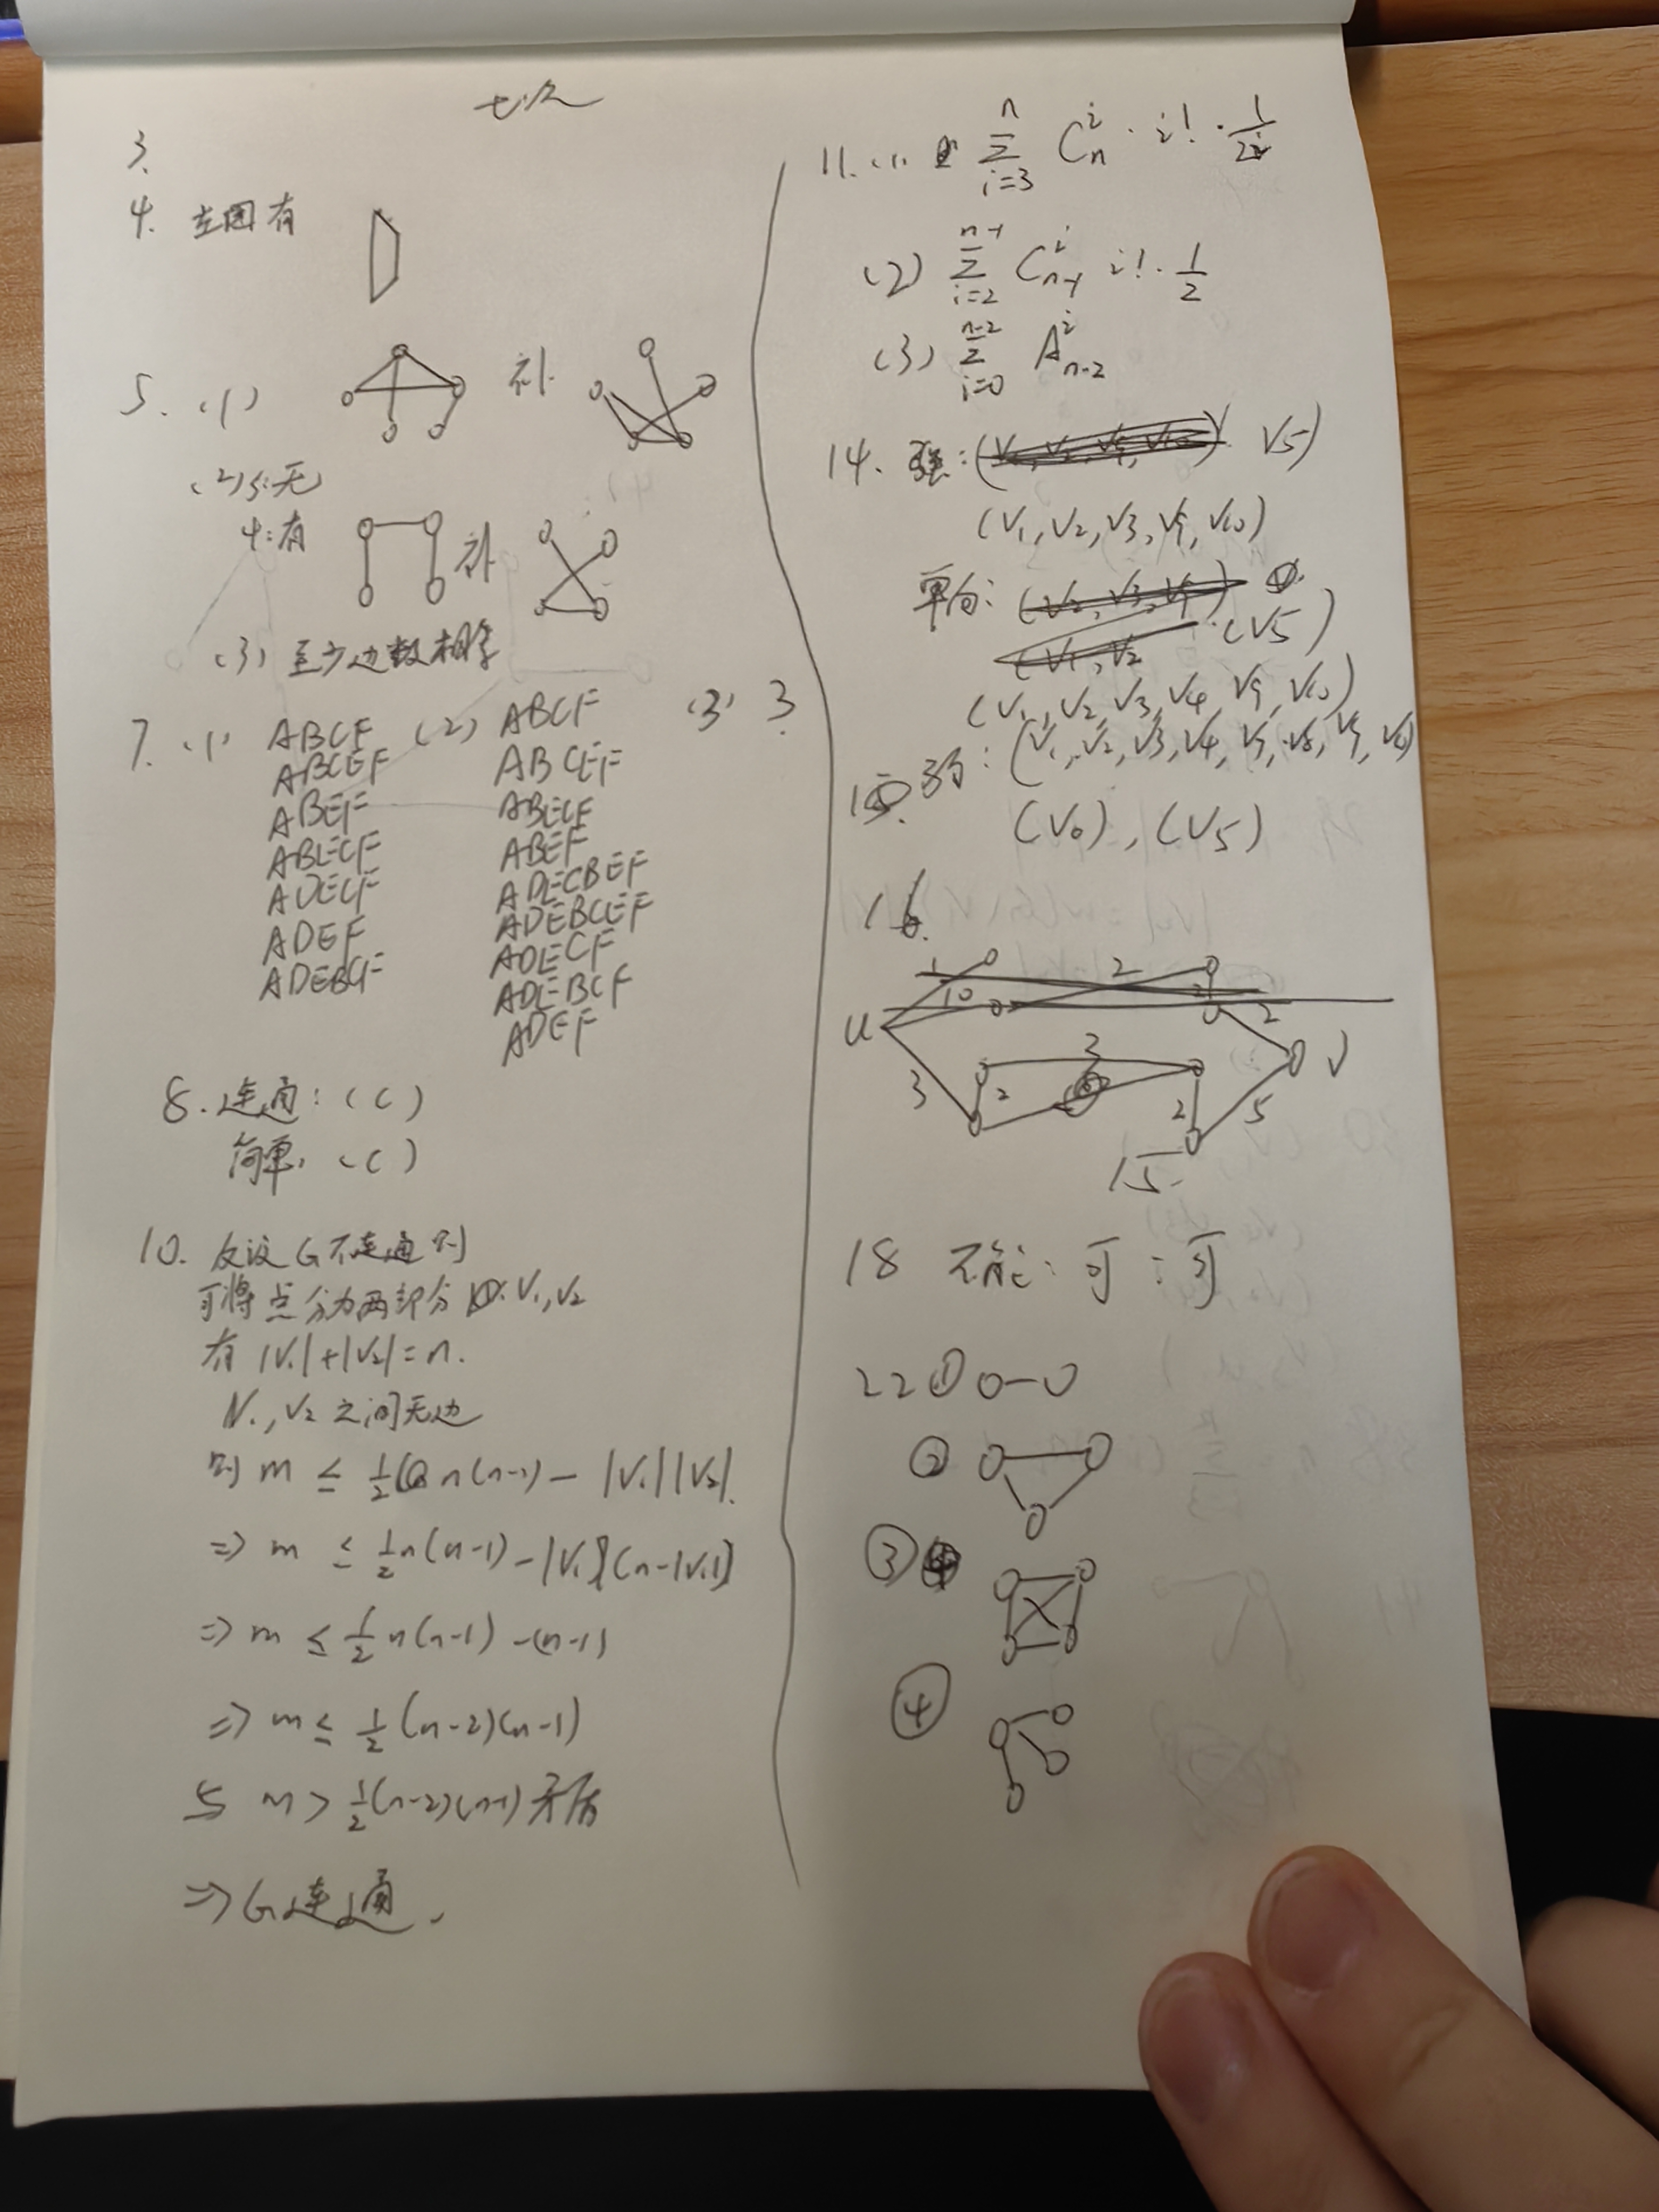 3.
4. 左图有
5. (1) 补
(2) 5:无
4:有 补
(3) 至少边数相等
7. (1) ABCF (2) ABCF (3) 3
ABCEF ABCEF
ABEF ABECF
ABECF ABEF
ADECF ADECBEF
ADEF ADEBCEF
ADEBCF ADECF
ADEBCF
ADEF
8. 连通: (C)
简单: (C)
10. 反设G不连通 则
可将点分为两部分 V₁,V₂
有 |V₁|+|V₂|=n.
V₁,V₂ 之间无边
则 m ≤ ½ n(n-1) - |V₁||V₂|.
⇒ m ≤ ½n(n-1)-|V₁|(n-|V₁|)
⇒ m ≤ ½n(n-1)-(n-1)
⇒ m ≤ ½(n-2)(n-1)
与 m > ½(n-2)(n-1) 矛盾
⇒ G连通.
11. (1) Σ_{i=3}^{n} C_n^i · i! · 1/2i
(2) Σ_{i=2}^{n-1} C_{n-1}^i i! · 1/2
(3) Σ_{i=0}^{n-2} A_{n-2}^i
14. 强: V5)
(V1, V2, V3, V9, V10)
单向:
(V5)
(V1, V2, V3, V4, V9, V10)
15. 弱:
(V6), (V5)
16.
1 2
10 2
u 2 v
3
3 2 2 5
15
18 不能: 可: 可
22 ①
②
③
④